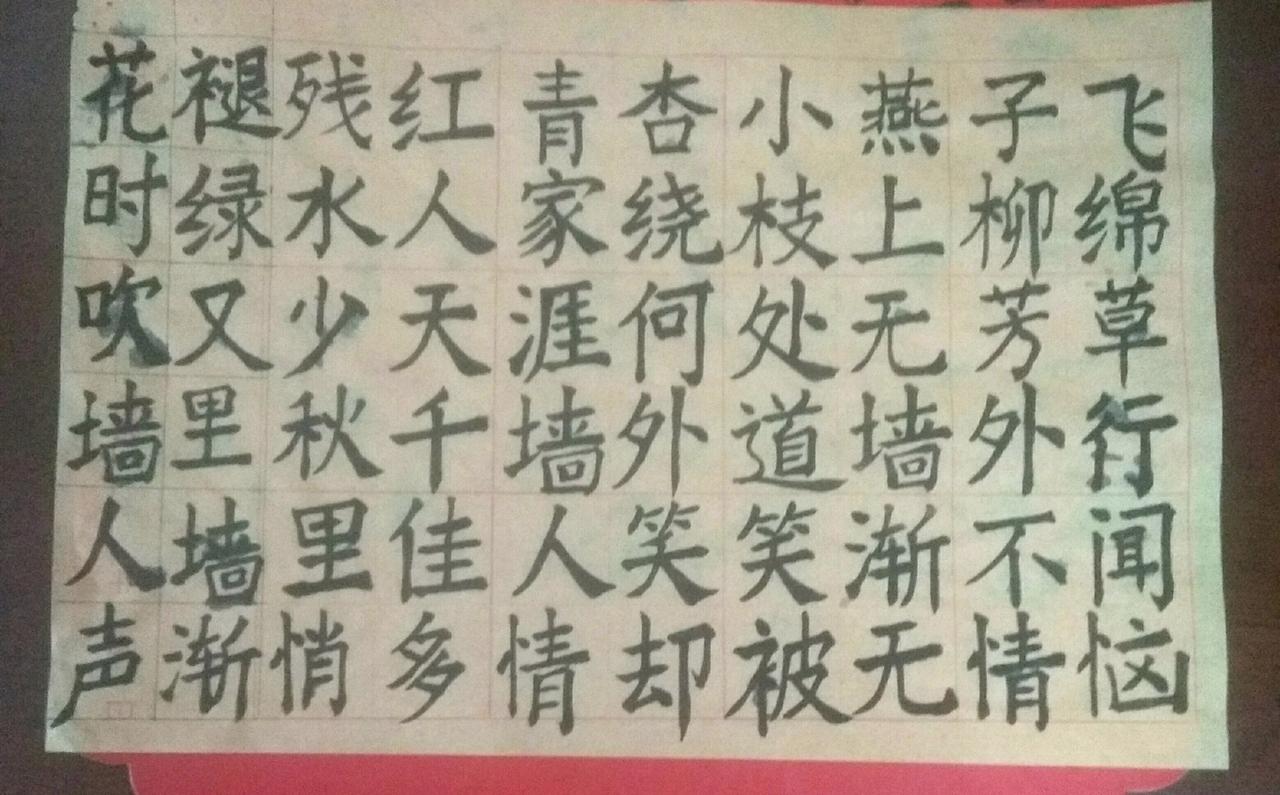 花褪残红青杏小燕子飞
时绿水人家绕枝上柳绵
吹又少天涯何处无芳草
墙里秋千墙外道墙外行
人墙里佳人笑笑渐不闻
声渐悄多情却被无情恼